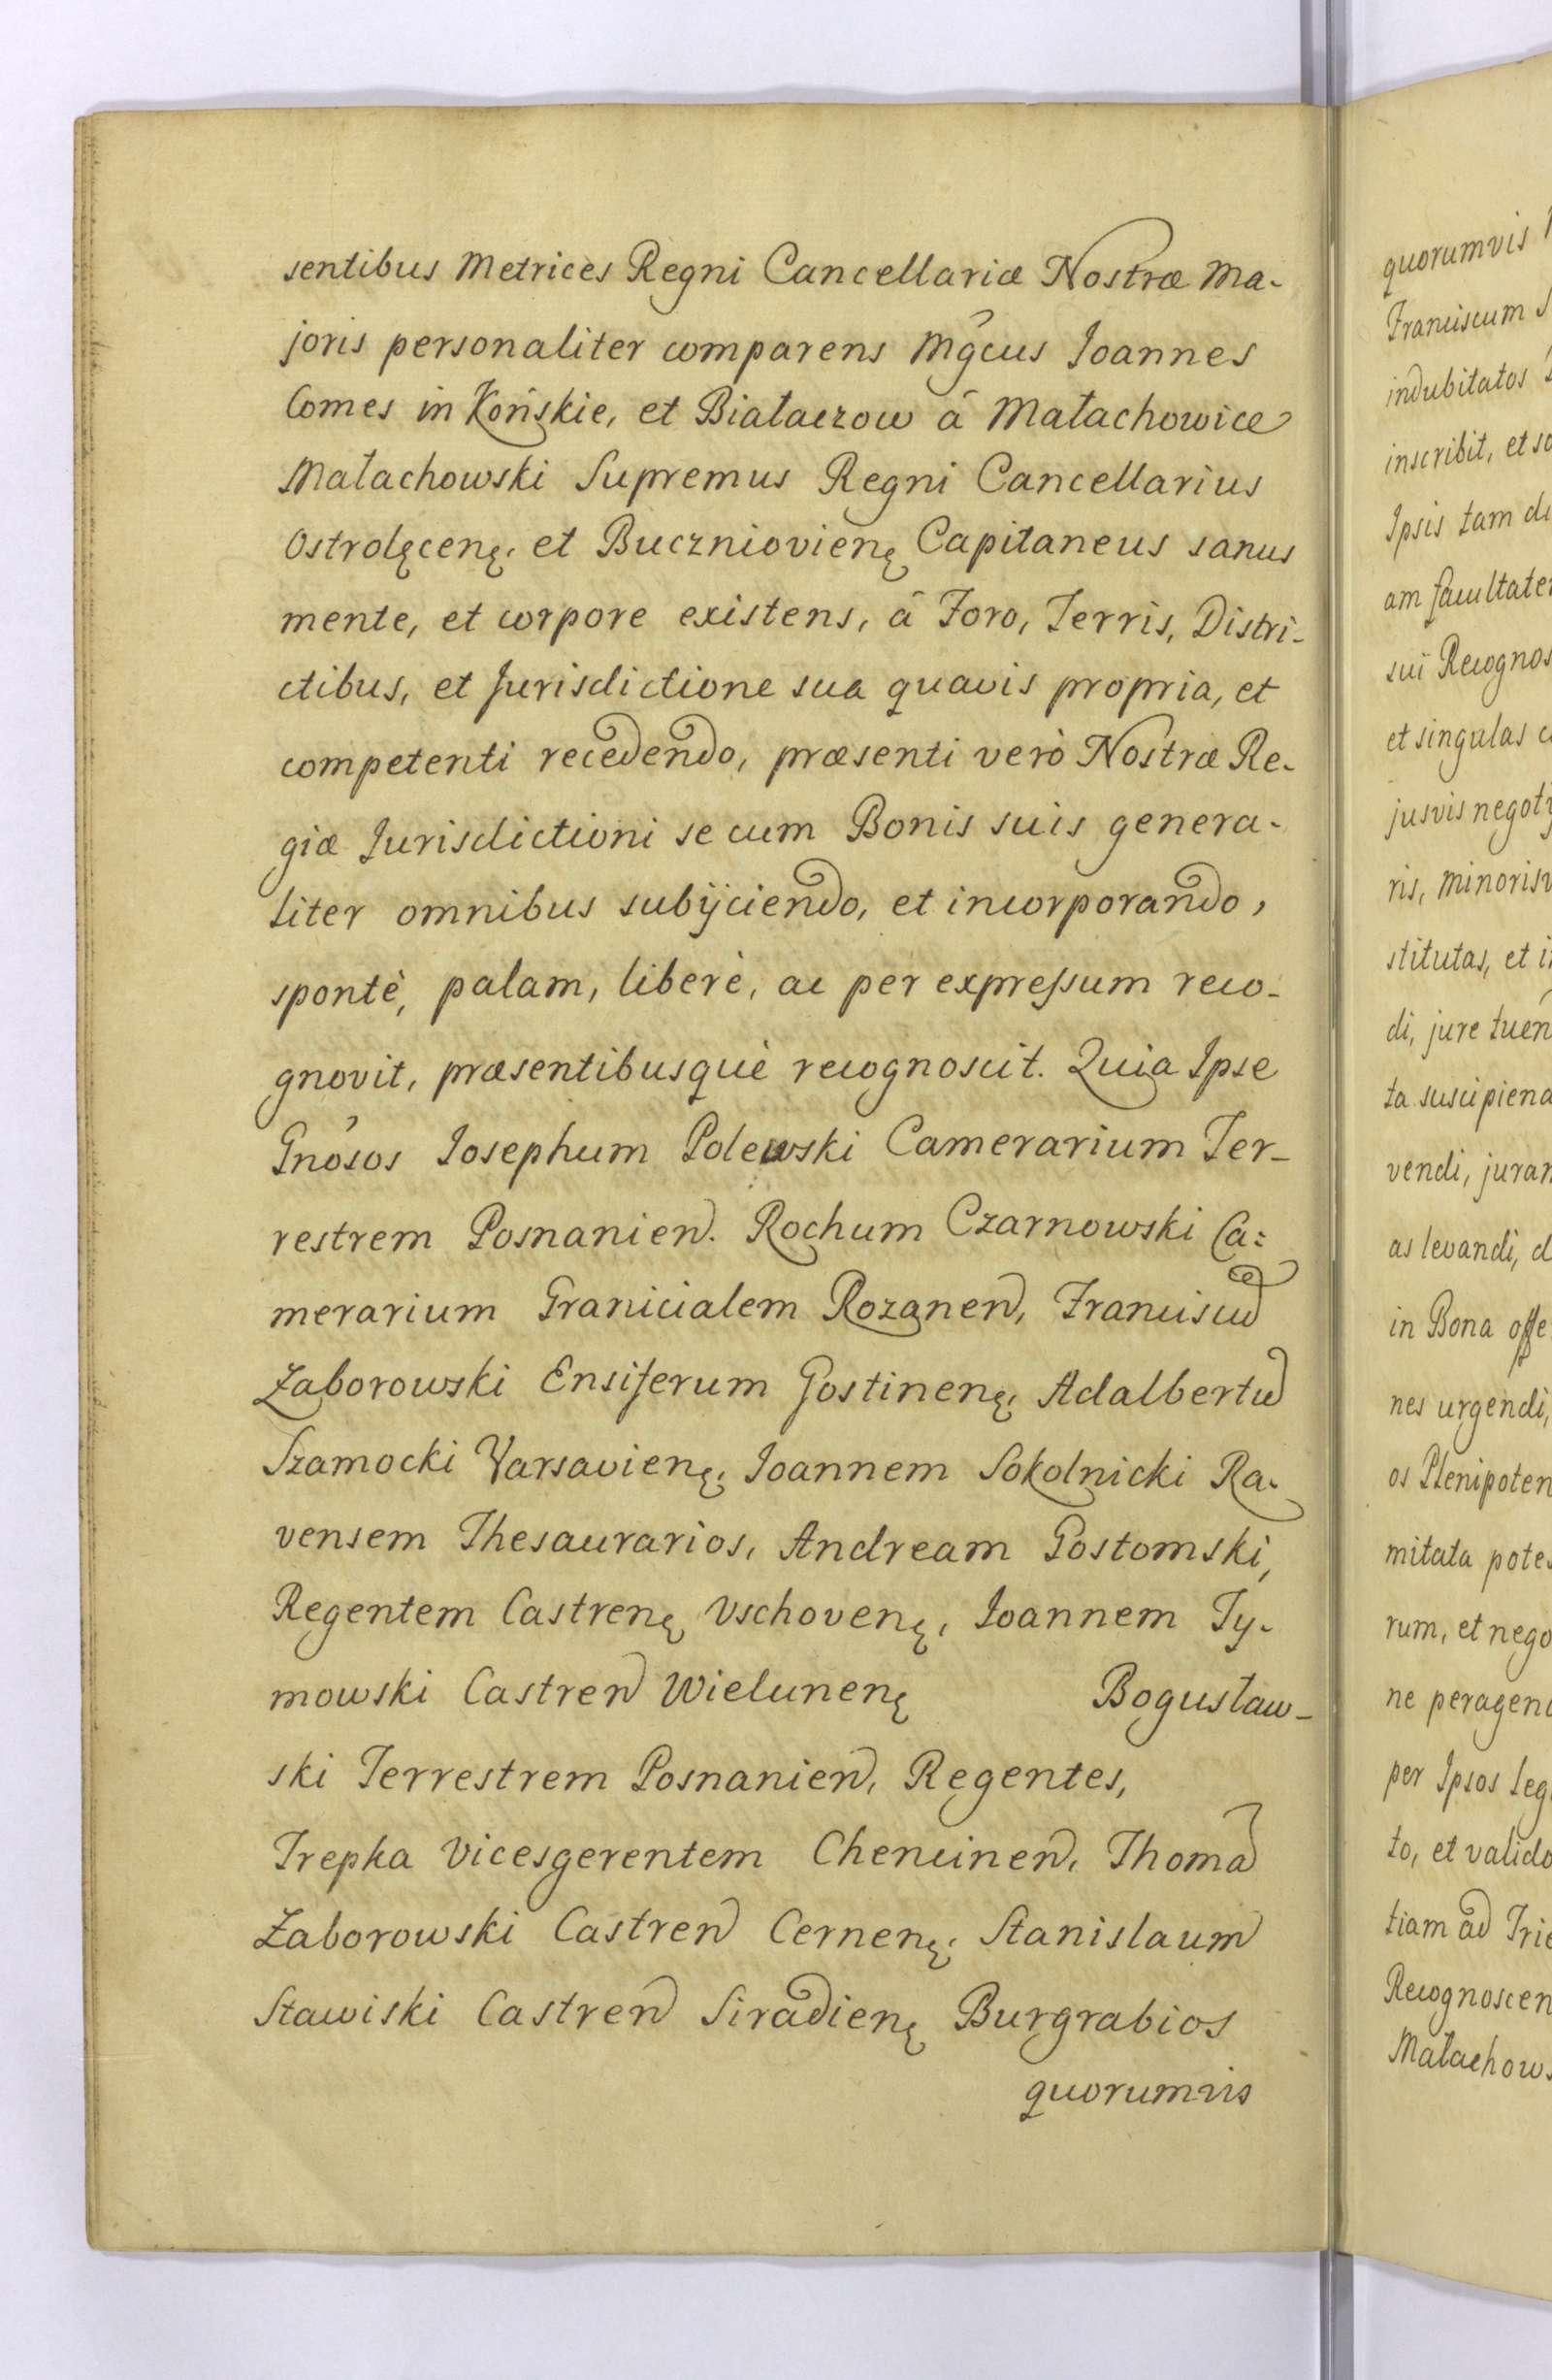 sentibus Metrices Regni Cancellariæ Nostræ Ma-
joris personaliter comparens Mgcus Joannes
Comes in Końskie, et Białaczow â Małachowice
Małachowski Supremus Regni Cancellarius
Ostrolęcenę, et Buczniovienę Capitaneus sanus
mente, et corpore existens, â Foro, Terris, Distri-
ctibus, et Jurisdictione sua quavis propria, et
competenti recedendo, præsenti verò Nostræ Re-
giæ Jurisdictioni se cum Bonis suis genera-
liter omnibus subijciendo, et incorporando,
spontè, palam, liberè, ac per expressum reco-
gnovit, præsentibusquè recognoscit. Quia Ipse
Gnosos Josephum Polewski Camerarium Ter-
restrem Posnanien. Rochum Czarnowski Ca:
merarium Granicialem Rozanen, Franciscu
Zaborowski Ensiferum Gostinenę, Adalbertu
Szamocki Varsavienę, Joannem Sokolnicki Ra-
vensem Thesaurarios, Andream Gostomski,
Regentem Castrenę Vschovenę, Joannem Ty-
mowski Castren Wielunenę Bogusław-
ski Terrestrem Posnanien, Regentes,
Trepka Vicesgerentem Chencinen, Thoma
Zaborowski Castren Cernenę, Stanislaum
Stawiski Castren Siradienę Burgrabios
quorumvis
quorumvis
Franciscum S
indubitatos
inscribit, et so
Ipsis tam di
am facultate
sui Recognos
et singulas c
jusvis negotij
ris, minorisv
stitutas, et i
di, jure tuen
ta suscipiend
vendi, juran
as levandi, d
in Bona offe
nes urgendi,
os Plenipoten
mitata potes
rum, et nego
ne peragend
per Ipsos leg
to, et valido
tiam ad Trie
Recognoscen
Małachows